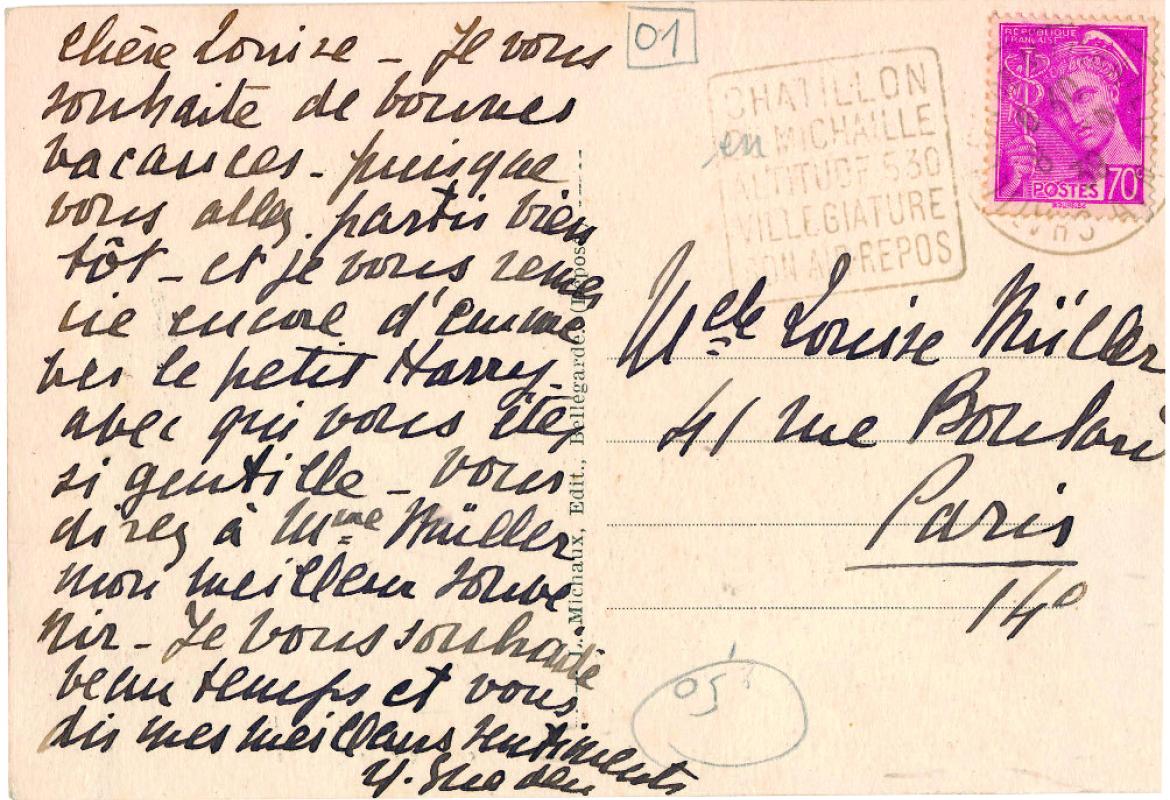 chère Louise - Je vous
souhaite de bonnes
vacances - puisque
vous allez partir bien
tôt - et je vous remer
cie encore d'emme
ner le petit Harry
avec qui vous êtes
si gentille - vous
direz à Mme Müller
mon meilleur souve
nir - Je vous souhaite
beau temps et vous
dis mes meilleurs sentiments
Y.
L. Michaux, Edit., Bellegarde.
01
CHATILLON
en MICHAILLE
ALTITUDE 530
VILLEGIATURE
BON AIR REPOS
REPUBLIQUE
FRANÇAISE
POSTES 70
Melle Louise Müller
41 rue Boulard
Paris
14e
05